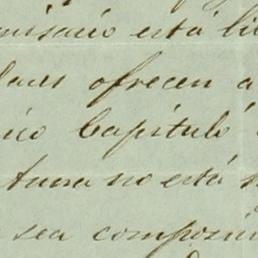 misario está li
ofrecen a
Capítulo
tura no está
sea composi